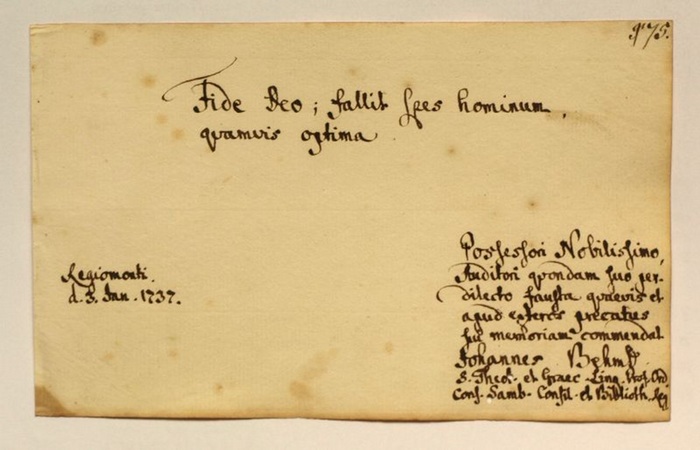 975.
Fide Deo; fallit spes hominum,
quamvis optima
Regiomonti.
d. 3. Jan. 1737.
Possessori Nobilissimo,
Auditori quondam suo per-
dilecto fausta quaevis et
apud exteros precatus
sui memoriam commendat
Johannes Behm
S. Theol. et Graec. Ling. Prof. Ord
Cons. Samb. Consil. et Biblioth. Reg